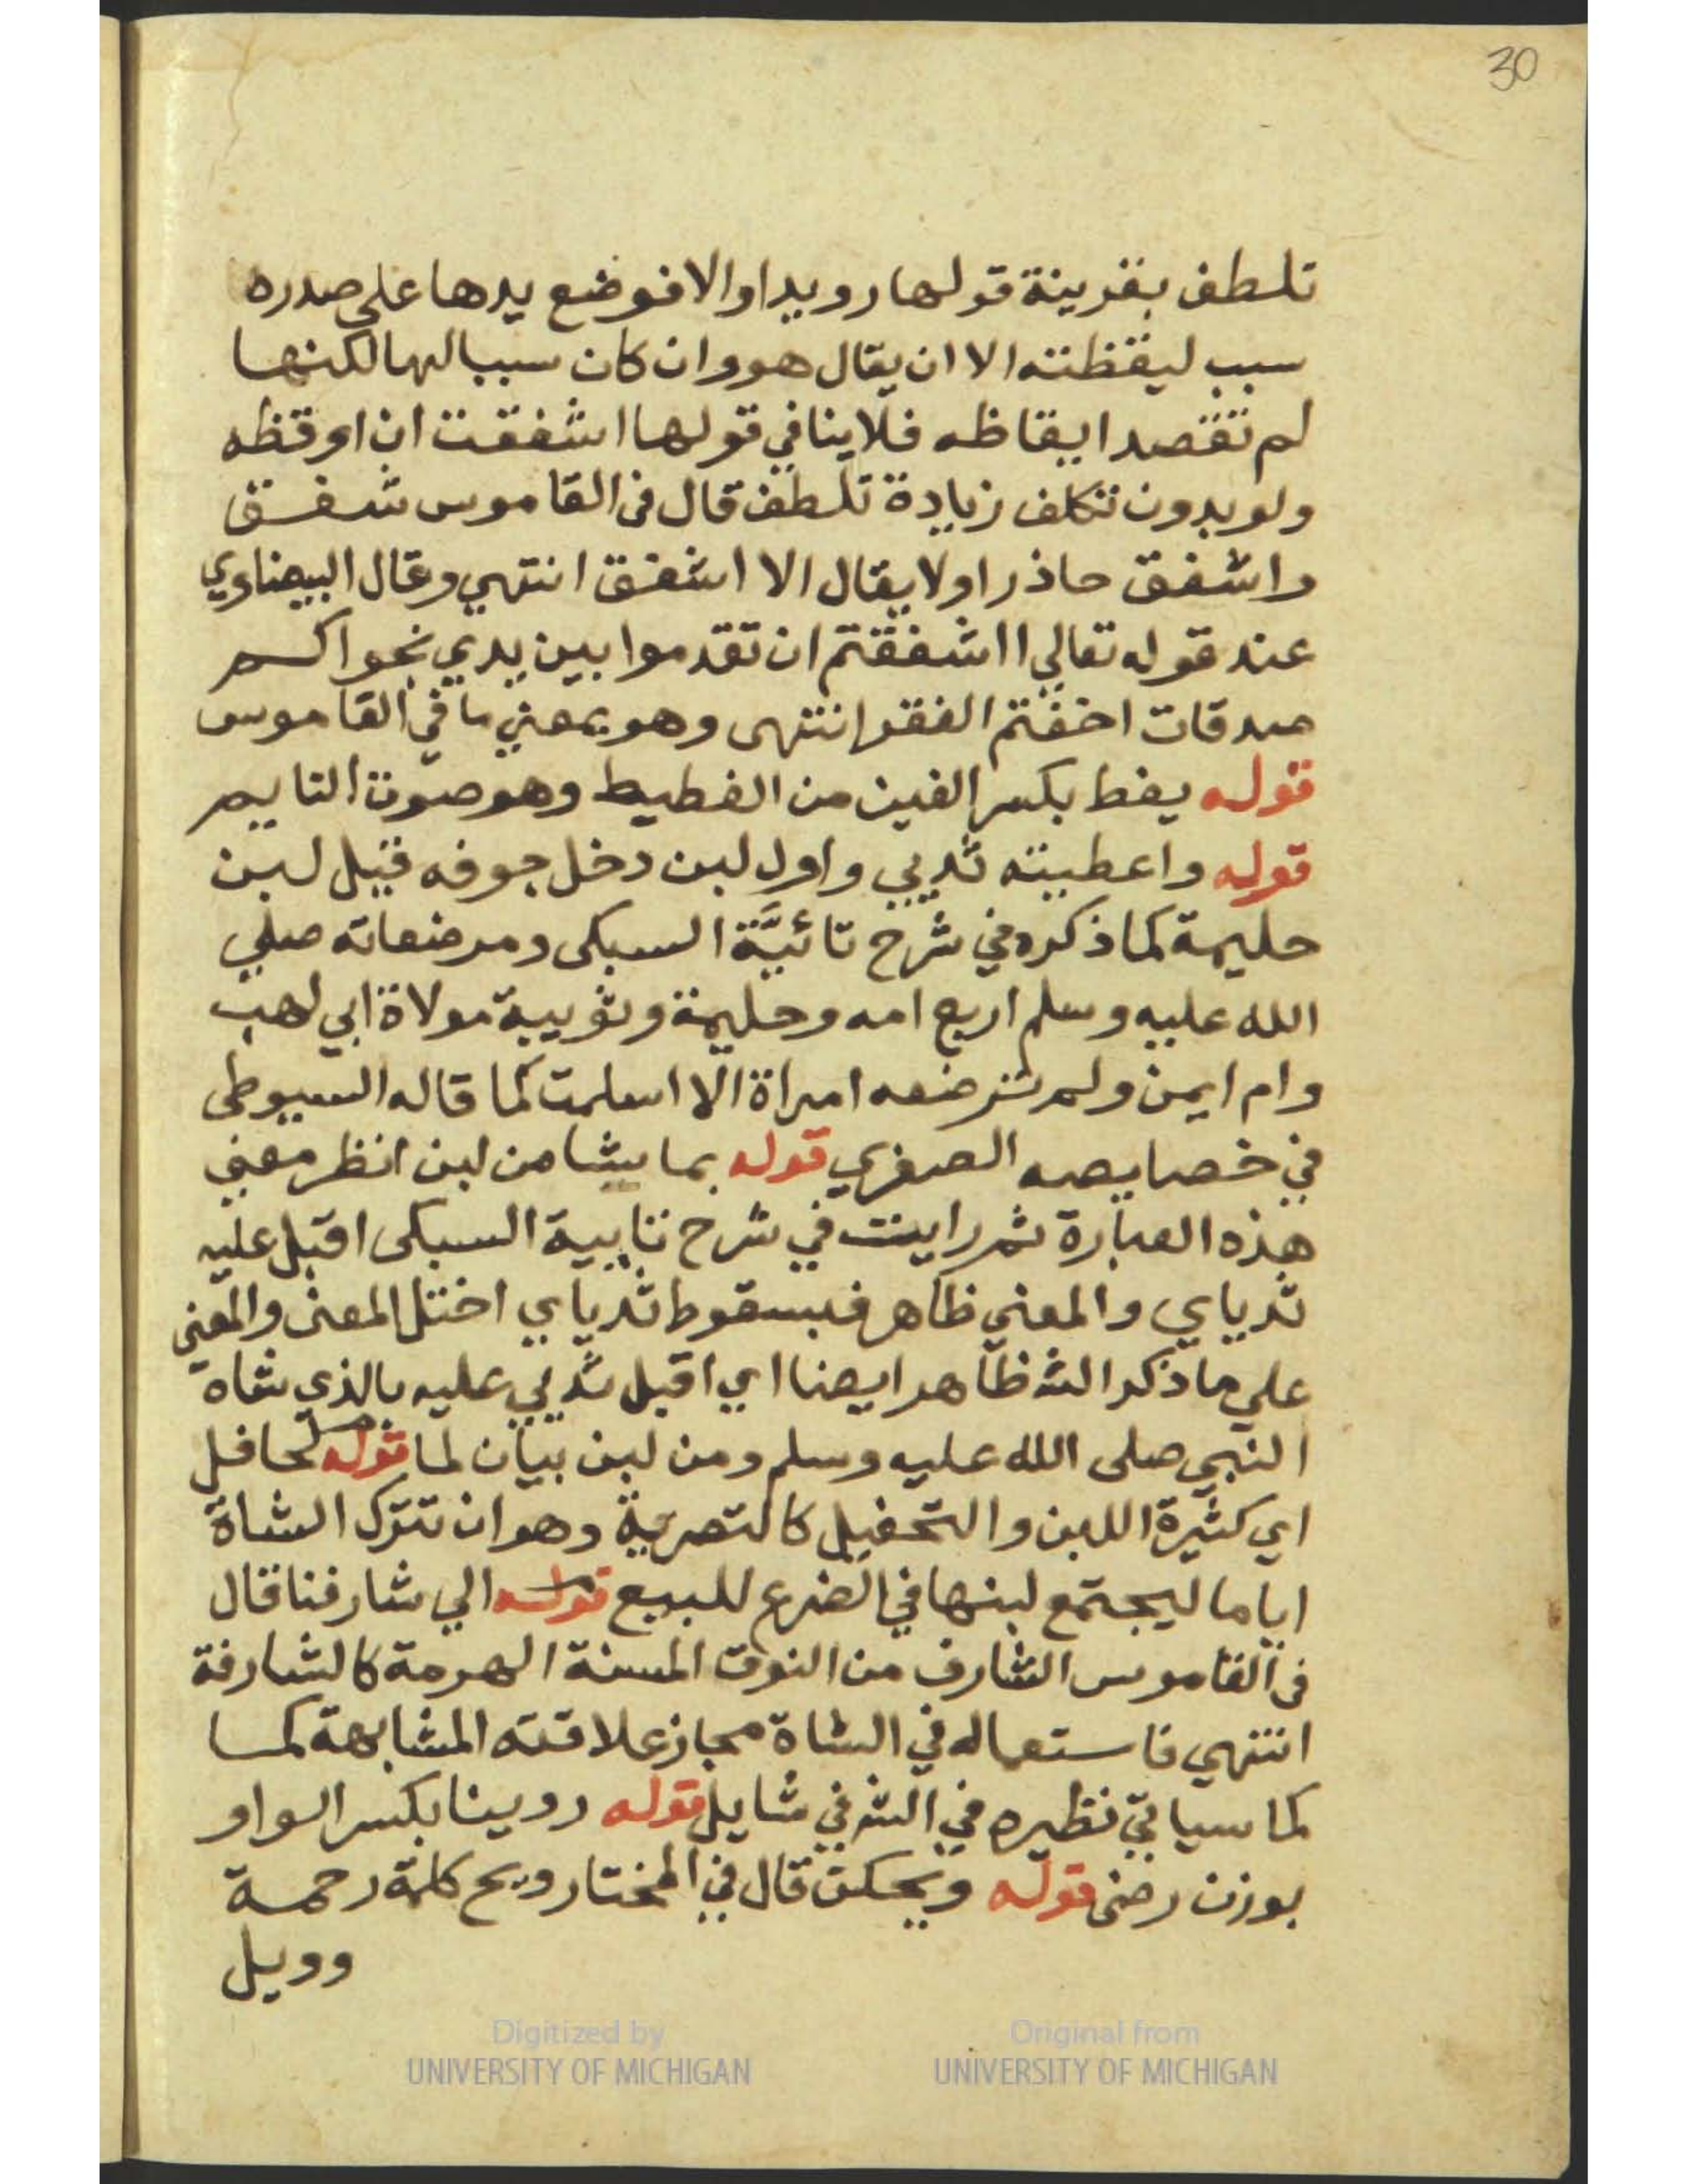 30
تلطف بقرينة قولها رويدا والا فوضع يدها على صدره
سبب ليقظته الا ان يقال هو وان كان سببا لها لكنها
لم تقصد ايقاظه فلا ينافي قولها اشفقت ان اوقظه
ولو بدون تكلف زيادة تلطف قال في القاموس شفق
واشفق حاذر اولا يقال الا اشفق انتهي وقال البيضاوي
عند قوله تعالي ااشفقتم ان تقدموا بين يدي نجواكم
صدقات اخفتم الفقر انتهى وهو بمعني ما في القاموس
قوله يغط بكسر الغين من الغطيط وهو صوت النايم
قوله واعطيته ثديي واول لبن دخل جوفه قبل لبن
حليمة كما ذكره في شرح تائيَّة السبكى ومرضعاته صلي
الله عليه وسلم اربع امه وحليمة وثويبة مولاة ابي لهب
وام ايمن ولم ترضعه امراة الا اسلمت كما قاله السيوطى
في خصايصه الصغري قوله بما يشا من لبن انظر معني
هذه العبارة ثم رايت في شرح تايية السبكى اقبل عليه
ثدياي والمعني ظاهر فبسقوط ثدياي اختل المعنى والمعني
علي ما ذكر الش ظاهر ايضا اي اقبل ثديي عليه بالذي شاه
النبي صلى الله عليه وسلم ومن لبن بيان لما قوله لحافل
اي كثيرة اللبن والتحفيل كالتصرية وهو ان تترك الشاة
اياما ليجتمع لبنها في الضرع للبيع قوله الي شارفنا قال
في القاموس الشارف من النوق المسنة الهرمة كالشارفة
انتهي فاستعماله في الشاة مجاز علاقته المشابهة كما
كما سياتي نظيره في الش في شايل قوله روينا بكسر الواو
بوزن رضى قوله ويحكن قال في المختار ويح كلمة رحمة
وويل
Digitized by
UNIVERSITY OF MICHIGAN
Original from
UNIVERSITY OF MICHIGAN